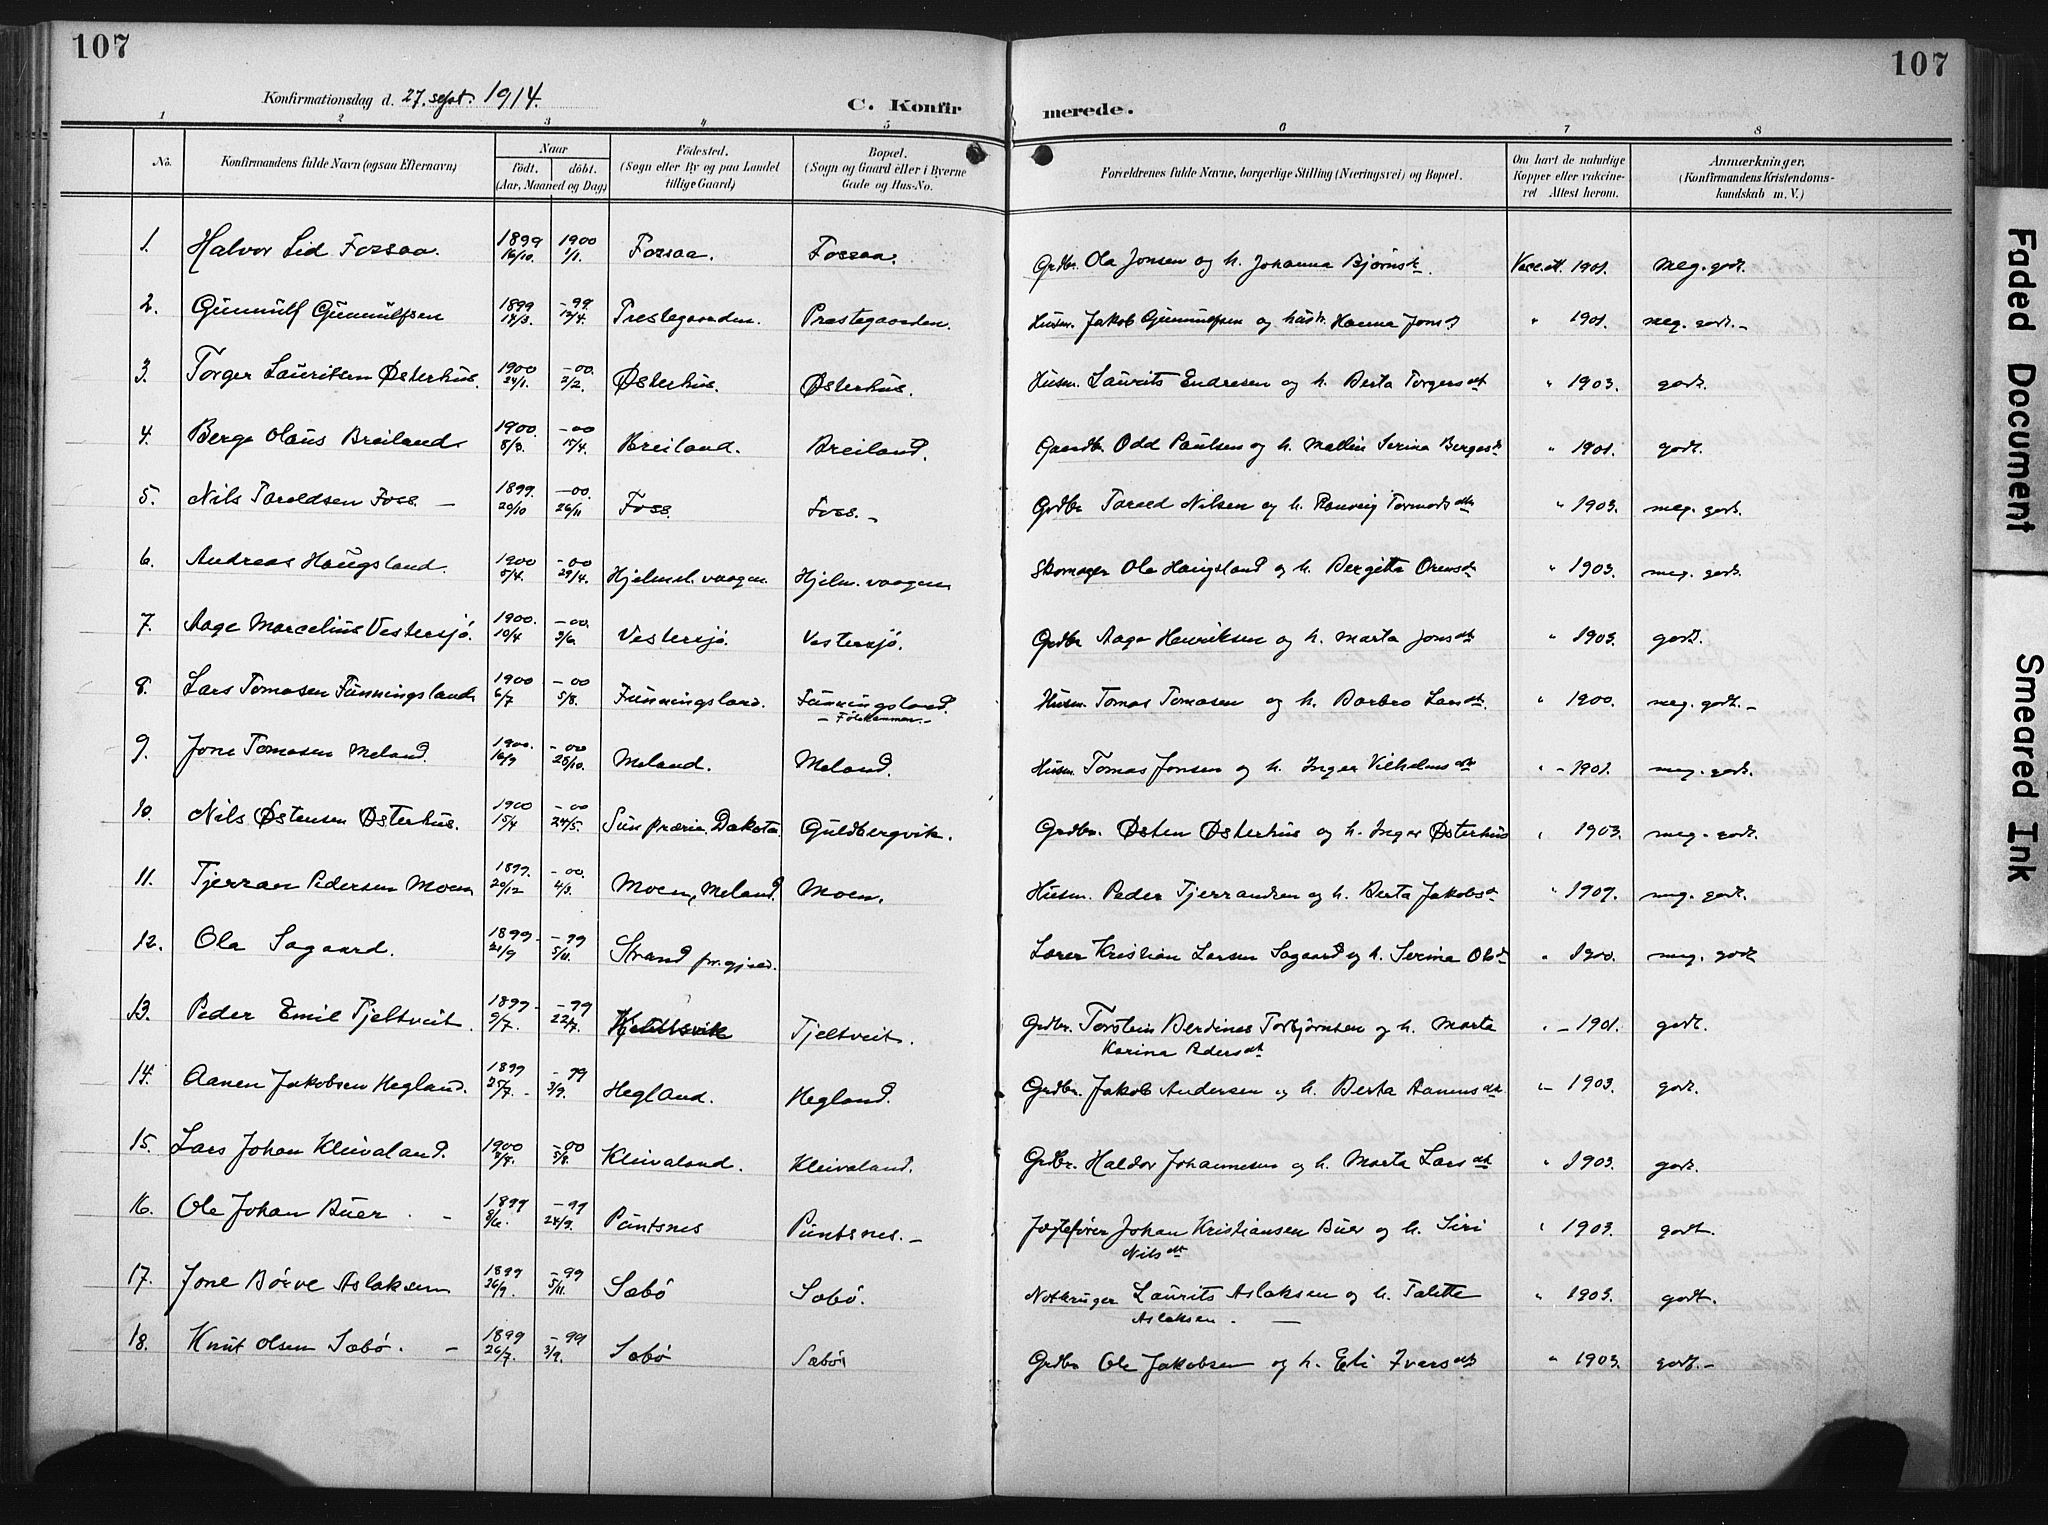 107
107
Konfirmationsdag d. 27. sept. 1914.
C. Konfirmerede.
1 2 3 4 5 6 7 8
No. Konfirmandens fulde Navn (ogsaa Efternavn) Naar født. døbt. (Aar, Maaned og Dag) Fødested. (Sogn eller By og paa Landet tillige Gaard) Bopæl. (Sogn og Gaard eller i Byerne Gade og Hus-No. Forældrenes fulde Navne, borgerlige Stilling (Næringsvei) og Bopæl. Om havt de naturlige Kopper eller vakcineret Attest herom. Anmærkninger, (Konfirmandens Kristendomskundskab m. V.)
1. Halvor Lid Fossaa. 1899 16/10. 1900 1/1. Fossaa. Fossaa. Grdbr. Ola Jonsen og h. Johanna Bjørnsdt. Vacc. at. 1901. meg. godt.
2. Gunnulf Gunnulfsen 1899 14/3. -99. 12/4. Prestegaarden. Prestegaarden. Husm. Jakob Gunnulfsen og hustr. Hanna Jonsd " 1901. meg. godt. -
3. Torger Lauritsen Østerhus. 1900 24/1. -00. 2/2. Østerhus. Østerhus. Husm. Laurits Endresen og h. Berta Torgersdt " 1903. godt.
4. Berge Olaus Breiland 1900. 8/3. -00 15/4. Breiland. Breiland. Gaardbr. Odd Paulsen og h. Mallin Serina Bergesdt " 1901. godt.
5. Nils Taroldsen Foss. - 1899. 20/10 -00. 26/11 Foss. Foss. - Grdbr Tarold Nilsen og h. Ranveig Tormodsdtr " 1903. meg. godt.
6. Andreas Haugsland. 1900 5/4. -00 29/4. Hjelmel. vaagen. Hjelm. vaagen Skomager Ole Haugsland og h. Bergitta Orensdt " 1903. meg. godt.
7. Aage Marcelius Vestersjø. 1900. 10/4 -00. 3/6. Vestersjø. Vestersjø. Grdbr Aage Henriksen og h. Marta Jonsdt " 1903. godt.
8. Lars Tomasen Funningsland 1900 6/7 -00 5/8. Funningsland. Funningsland. Husm. Tomas Tomasen og h. Barbro Larsdt. " 1900. meg. godt. -
9. Jone Tomasen Meland. 1900. 16/9 -00 28/10. Meland. Meland. Husm. Tomas Jonsen og h. Inger Vilhelmsdt " - 1901. meg. godt.
10. Nils Østensen Østerhus. 1900 15/4 -00 24/5. Sun præria. Dakota Guldbergvik. Grdbr. Østen Østerhus og h. Inger Østerhus " 1903. meg. godt.
11. Tjerran Pedersen Moen 1899. 20/12 -00. 4/3. Moen, Meland. Moen. Husm. Peder Tjerrandsen og h. Berta Jakobsdt " 1907. meg. godt.
12. Ola Sagaard. 1899. 21/9 -99 5/11. Strand pr.gjeld. Lærer Kristian Larsen Sagaard og h. Serina Olsdt " 1900. meg. godt
13. Peder Emil Tjeltveit. 1899 9/7. -99 22/7. Tjeltveit. Grdbr. Torstein Berdines Torbjørnsen og h. Marta " - 1901. godt.
Karina Pedersdt
14. Aanen Jakobsen Hegland. 1899 25/7. - -99 3/9. Hegland. Hegland. Grdbr. Jakob Andersen og h. Berta Aanensdt " - 1903. godt.
15. Lars Johan Kleivaland. 1900 -00 5/8. Kleivaland. Kleivaland. Grdbr. Haldor Johannesen og h. Marta Larsdt " 1903. godt.
16. Ole Johan Buer. - 1899 8/6. -99 24/9. Puntsnes Puntsnes. - Jægtefører Johan Kristiansen Buer og h. Siri " 1903. godt.
Nilsdt
17. Jone Børve Aslaksen 1899 26/9. -99 5/11. Sæbø Sæbø. Notbruger Laurits Aslaksen og h. Talette " 1903. godt.
Aslaksen. -
18. Knut Olsen Sæbø. - 1899 26/7. -99 3/9. Sæbø Sæbø Grdbr Ole Jakobsen og h. Eli Iversdt " 1903. godt. -
Faded Document
Smeared Ink